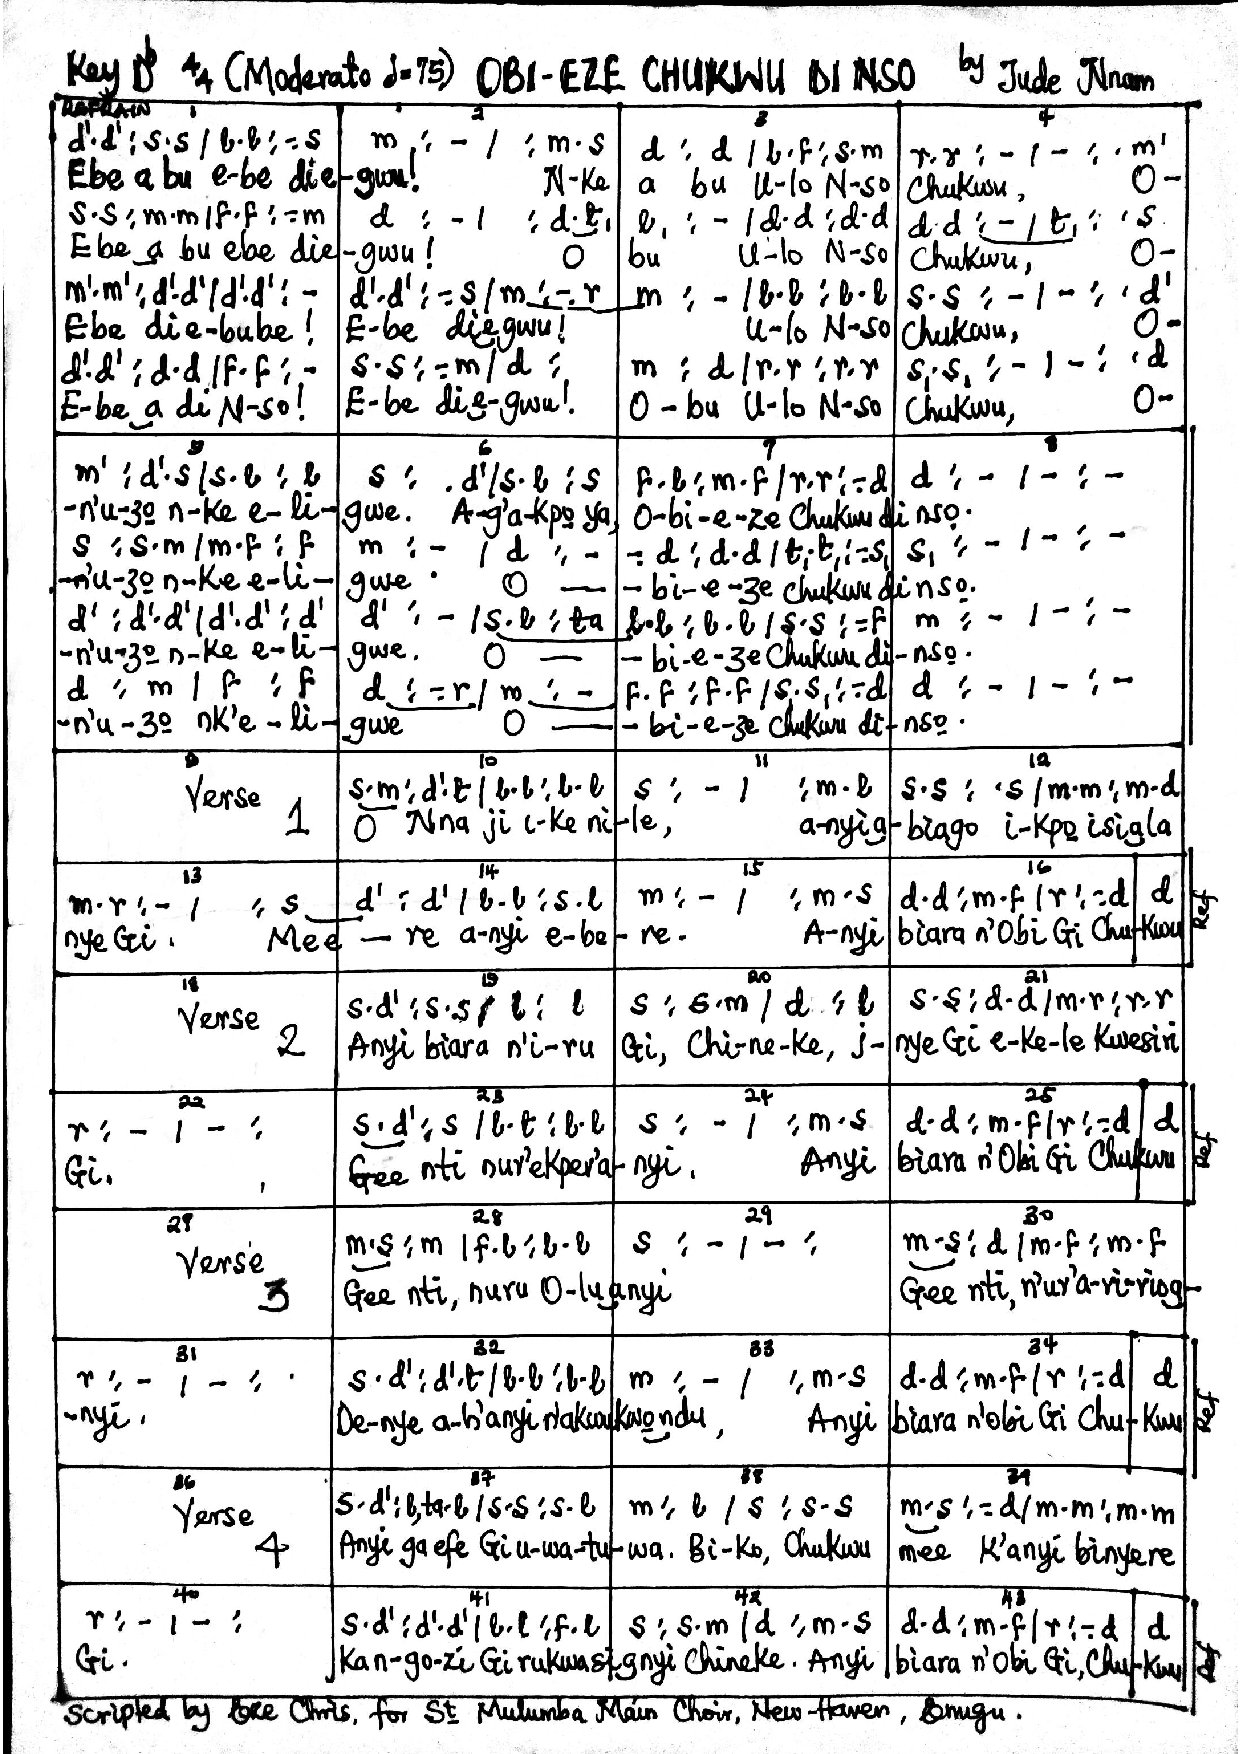 Key D♭ 4/4 (Moderato ♩=75) OBI-EZE CHUKWU DI NSO by Jude Nnam
REFRAIN 1 2 3 4
d'.d' : s.s / l.l : -.s m : - / : m.s d : d / l.f : s.m r.r : - / - : . m'
Ebe a bu e-be die-gwu! N-ke a bu U-lo N-so Chukwu, O-
s.s : m.m / f.f : -.m d : - / : d.t, l, : - / d.d : d.d d.d : - / t, : . s
Ebe a bu ebe die-gwu! O bu U-lo N-so Chukwu, O-
m'.m' : d'.d' / d'.d' : - d'.d' : -.s / m : -.r m : - / l.l : l.l s.s : - / - : . d'
Ebe di e-bube! E-be diegwu! U-lo N-so Chukwu, O-
d'.d' : d.d / f.f : - s.s : -.m / d : m : d / r.r : r.r s,.s, : - / - : . d
E-be a di N-so! E-be die-gwu! O-bu U-lo N-so Chukwu, O-
5 6 7 8
m' : d'.s / s.l : l s : . d' / s.l : s f.l : m.f / r.r : -.d d : - / - : -
-n'u-zọ n-ke e-li-gwe. A-g'a-kpọ ya, O-bi-e-ze Chukwu di nsọ.
s : s.m / m.f : f m : - / d : - -.d : d.d / t,.t, : -.s, s, : - / - : -
-n'u-zọ n-ke e-li-gwe. O - bi-e-ze Chukwu di nsọ.
d' : d'.d' / d'.d' : d' d' : - / s.l : ta l.l : l.l / s.s : -.f m : - / - : -
-n'u-zọ n-ke e-li-gwe. O - bi-e-ze Chukwu di-nsọ.
d : m / f : f d : -.r / m : - f.f : f.f / s.s, : -.d d : - / - : -
-n'u-zọ nk'e-li-gwe O - bi-e-ze Chukwu di-nsọ.
9 10 11 12
Verse 1 s.m : d'.t / l.l : l.l s : - / : m.l s.s : .s / m.m : m.d
O Nna ji i-ke ni-le, a-nyig-biago i-kpọ isigla
13 14 15 16
m.r : - / : s d' : d' / l.l : s.l m : - / : m.s d.d : m.f / r : -.d d Ref
nye Gi. Mee - re a-nyi e-be-re. A-nyi biara n'Obi Gi Chu-kwu
18 19 20 21
Verse 2 s.d' : s.s / l : l s : s.m / d : l s.s : d.d / m.r : r.r
Anyi biara n'i-ru Gi, Chi-ne-ke, i-nye Gi e-ke-le kwesiri
22 23 24 25
r : - / - : s.d' : s / l.t : l.l s : - / : m.s d.d : m.f / r : -.d d Ref
Gi. Gee nti nur'ekper'a-nyi. Anyi biara n'Obi Gi Chukwu
27 28 29 30
Verse 3 m.s : m / f.l : l.l s : - / - : m.s : d / m.f : m.f
Gee nti, nuru O-luanyi Gee nti, n'ur'a-ri-riog-
31 32 33 34
r : - / - : . s.d' : d'.t / l.l : l.l m : - / : m.s d.d : m.f / r : -.d d Ref
-nyi. De-nye a-h'anyi n'akwukwondu, Anyi biara n'obi Gi Chu-kwu
36 37 38 39
Verse 4 s.d' : l,ta.l / s.s : s.l m : l / s : s.s m.s : -.d / m.m : m.m
Anyi ga efe Gi u-wa-tu-wa. Bi-ko, Chukwu mee k'anyi binyere
40 41 42 43
r : - / - : s.d' : d'.d' / l.l : f.l s : s.m / d : m.s d.d : m.f / r : -.d d Ref
Gi. Kan-go-zi Gi rukwasignyi Chineke. Anyi biara n'Obi Gi, Chu-kwu
Scripted by Eze Chris, for St Mulumba Main Choir, New-Haven, Enugu.